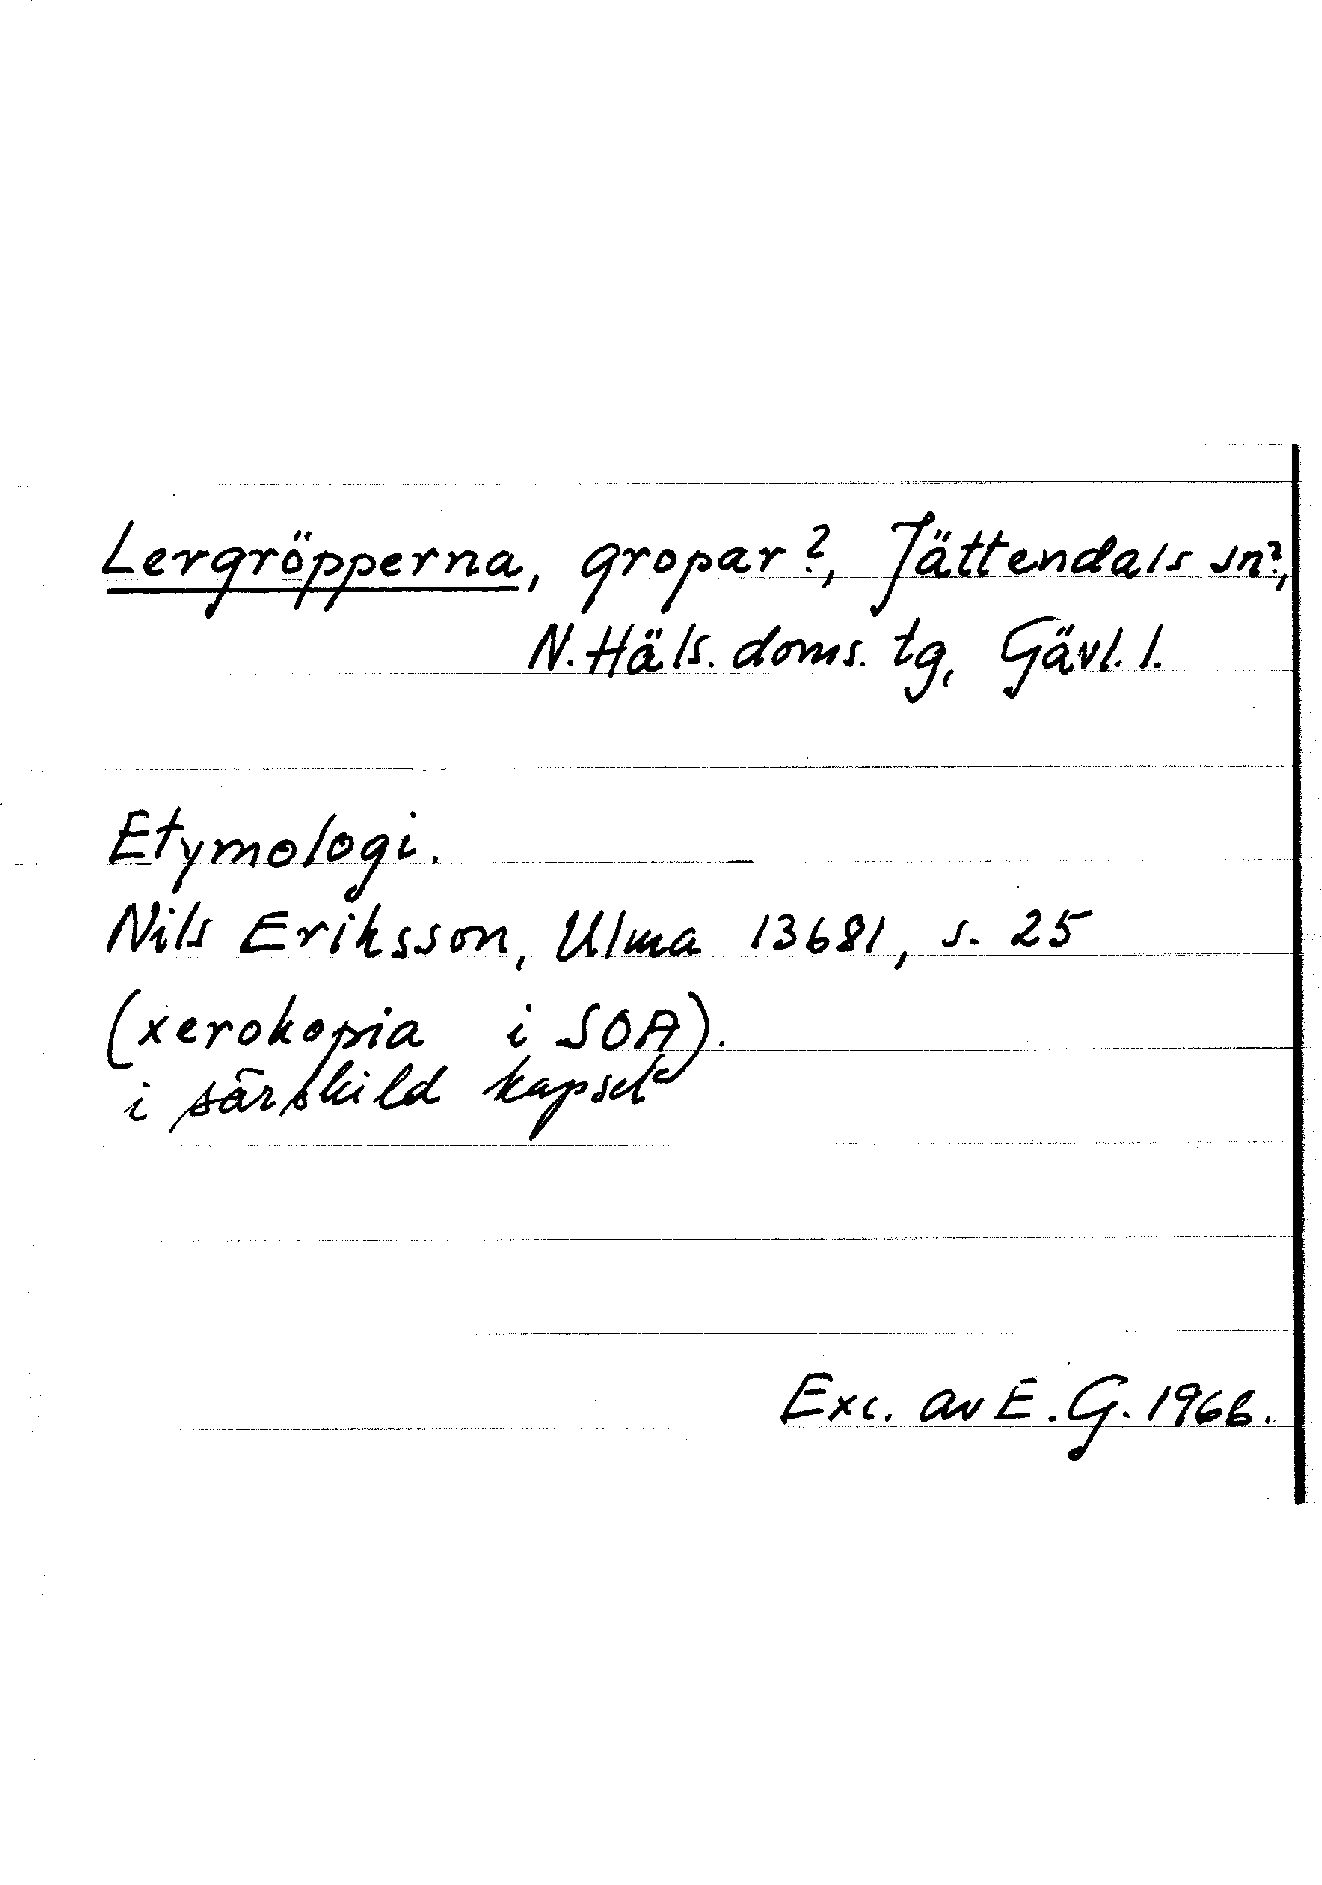 Lergröpperna, gropar?, Jättendals sn?,
N. Häls. doms. tg, Gävl. l.
Etymologi.
Nils Eriksson, Ulma 13681, s. 25
(xerokopia i SOA).
i särskild kapsel
Exc. av E. G. 1966.